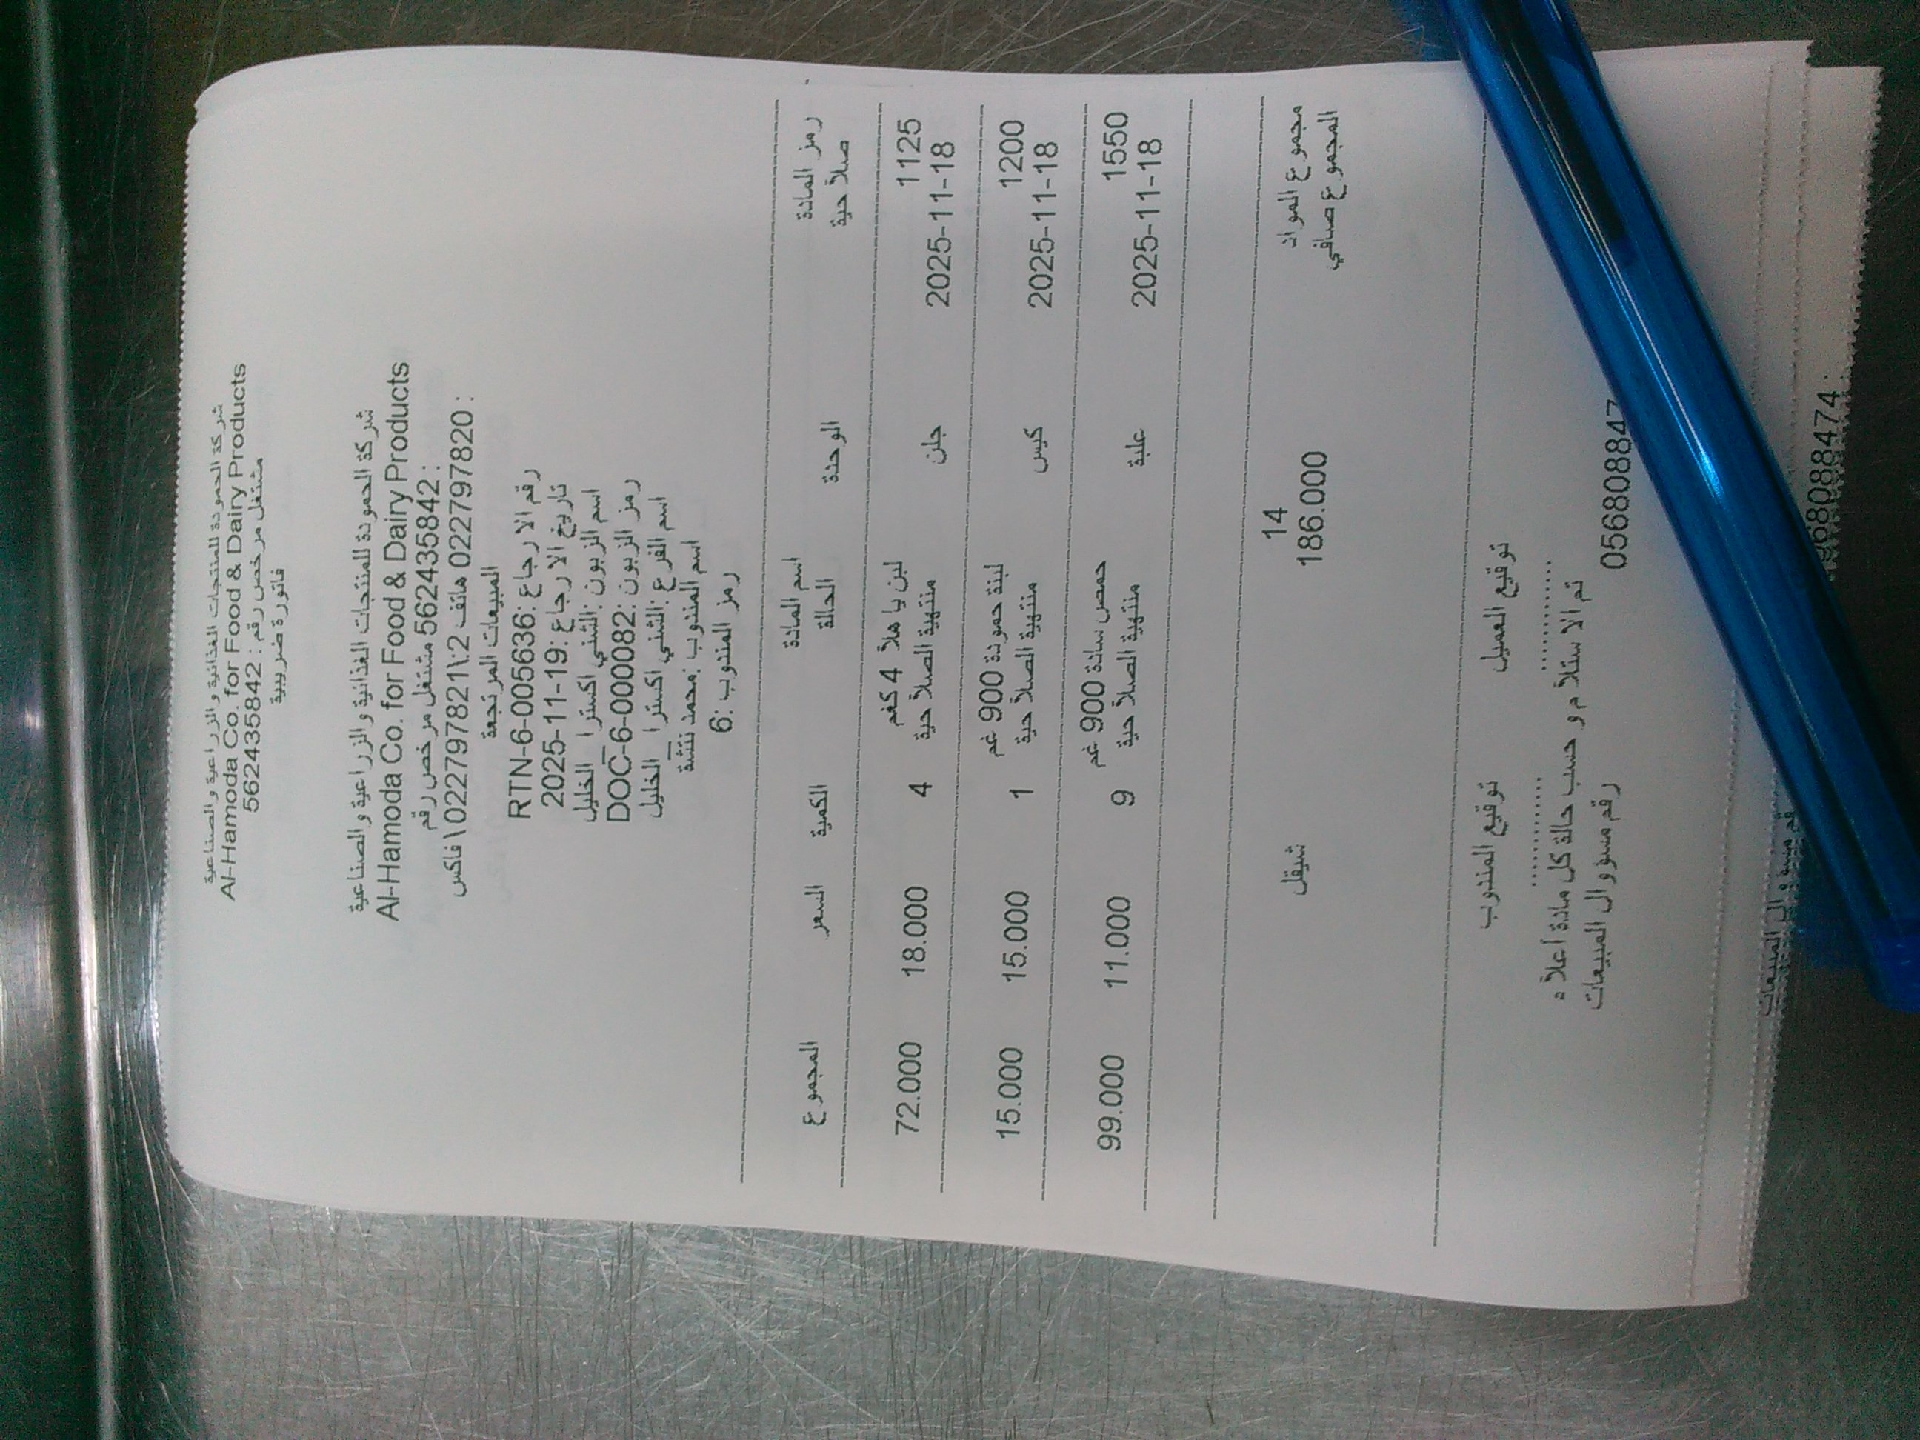 شركة الحمودة للمنتجات الغذائية والزراعية والصناعية
Al-Hamoda Co. for Food & Dairy Products
مشتغل مرخص رقم : 562435842
فاتورة ضريبية
شركة الحمودة للمنتجات الغذائية والزراعية والصناعية
Al-Hamoda Co. for Food & Dairy Products
مشتغل مرخص رقم 562435842 :
فاكس \ 022797821\:2 هاتف 022797820 :
المبيعات المرتجعة
رقم الارجاع :RTN-6-005636
تاريخ الارجاع :2025-11-19
اسم الزبون :الشني اكسترا_الخليل
رمز الزبون :DOC-6-000082
اسم الفرع :الشني اكسترا_الخليل
اسم المندوب :محمد نتشة
رمز المندوب :6
رمز المادة اسم المادة الوحدة الكمية السعر المجموع
صلاحية الحالة
1125 لبن يا هلا 4 كغم جلن 4 18.000 72.000
2025-11-18 منتهية الصلاحية
1200 لبنة حمودة 900 غم كيس 1 15.000 15.000
2025-11-18 منتهية الصلاحية
1550 حمص سادة 900 غم علبة 9 11.000 99.000
2025-11-18 منتهية الصلاحية
مجموع المواد 14
المجموع صافي 186.000 شيقل
توقيع العميل توقيع المندوب
.............. ..............
تم الاستلام و حسب حالة كل مادة أعلاه
رقم مسؤوال المبيعات 056808847
رقم مسؤوال المبيعات 568088474 :